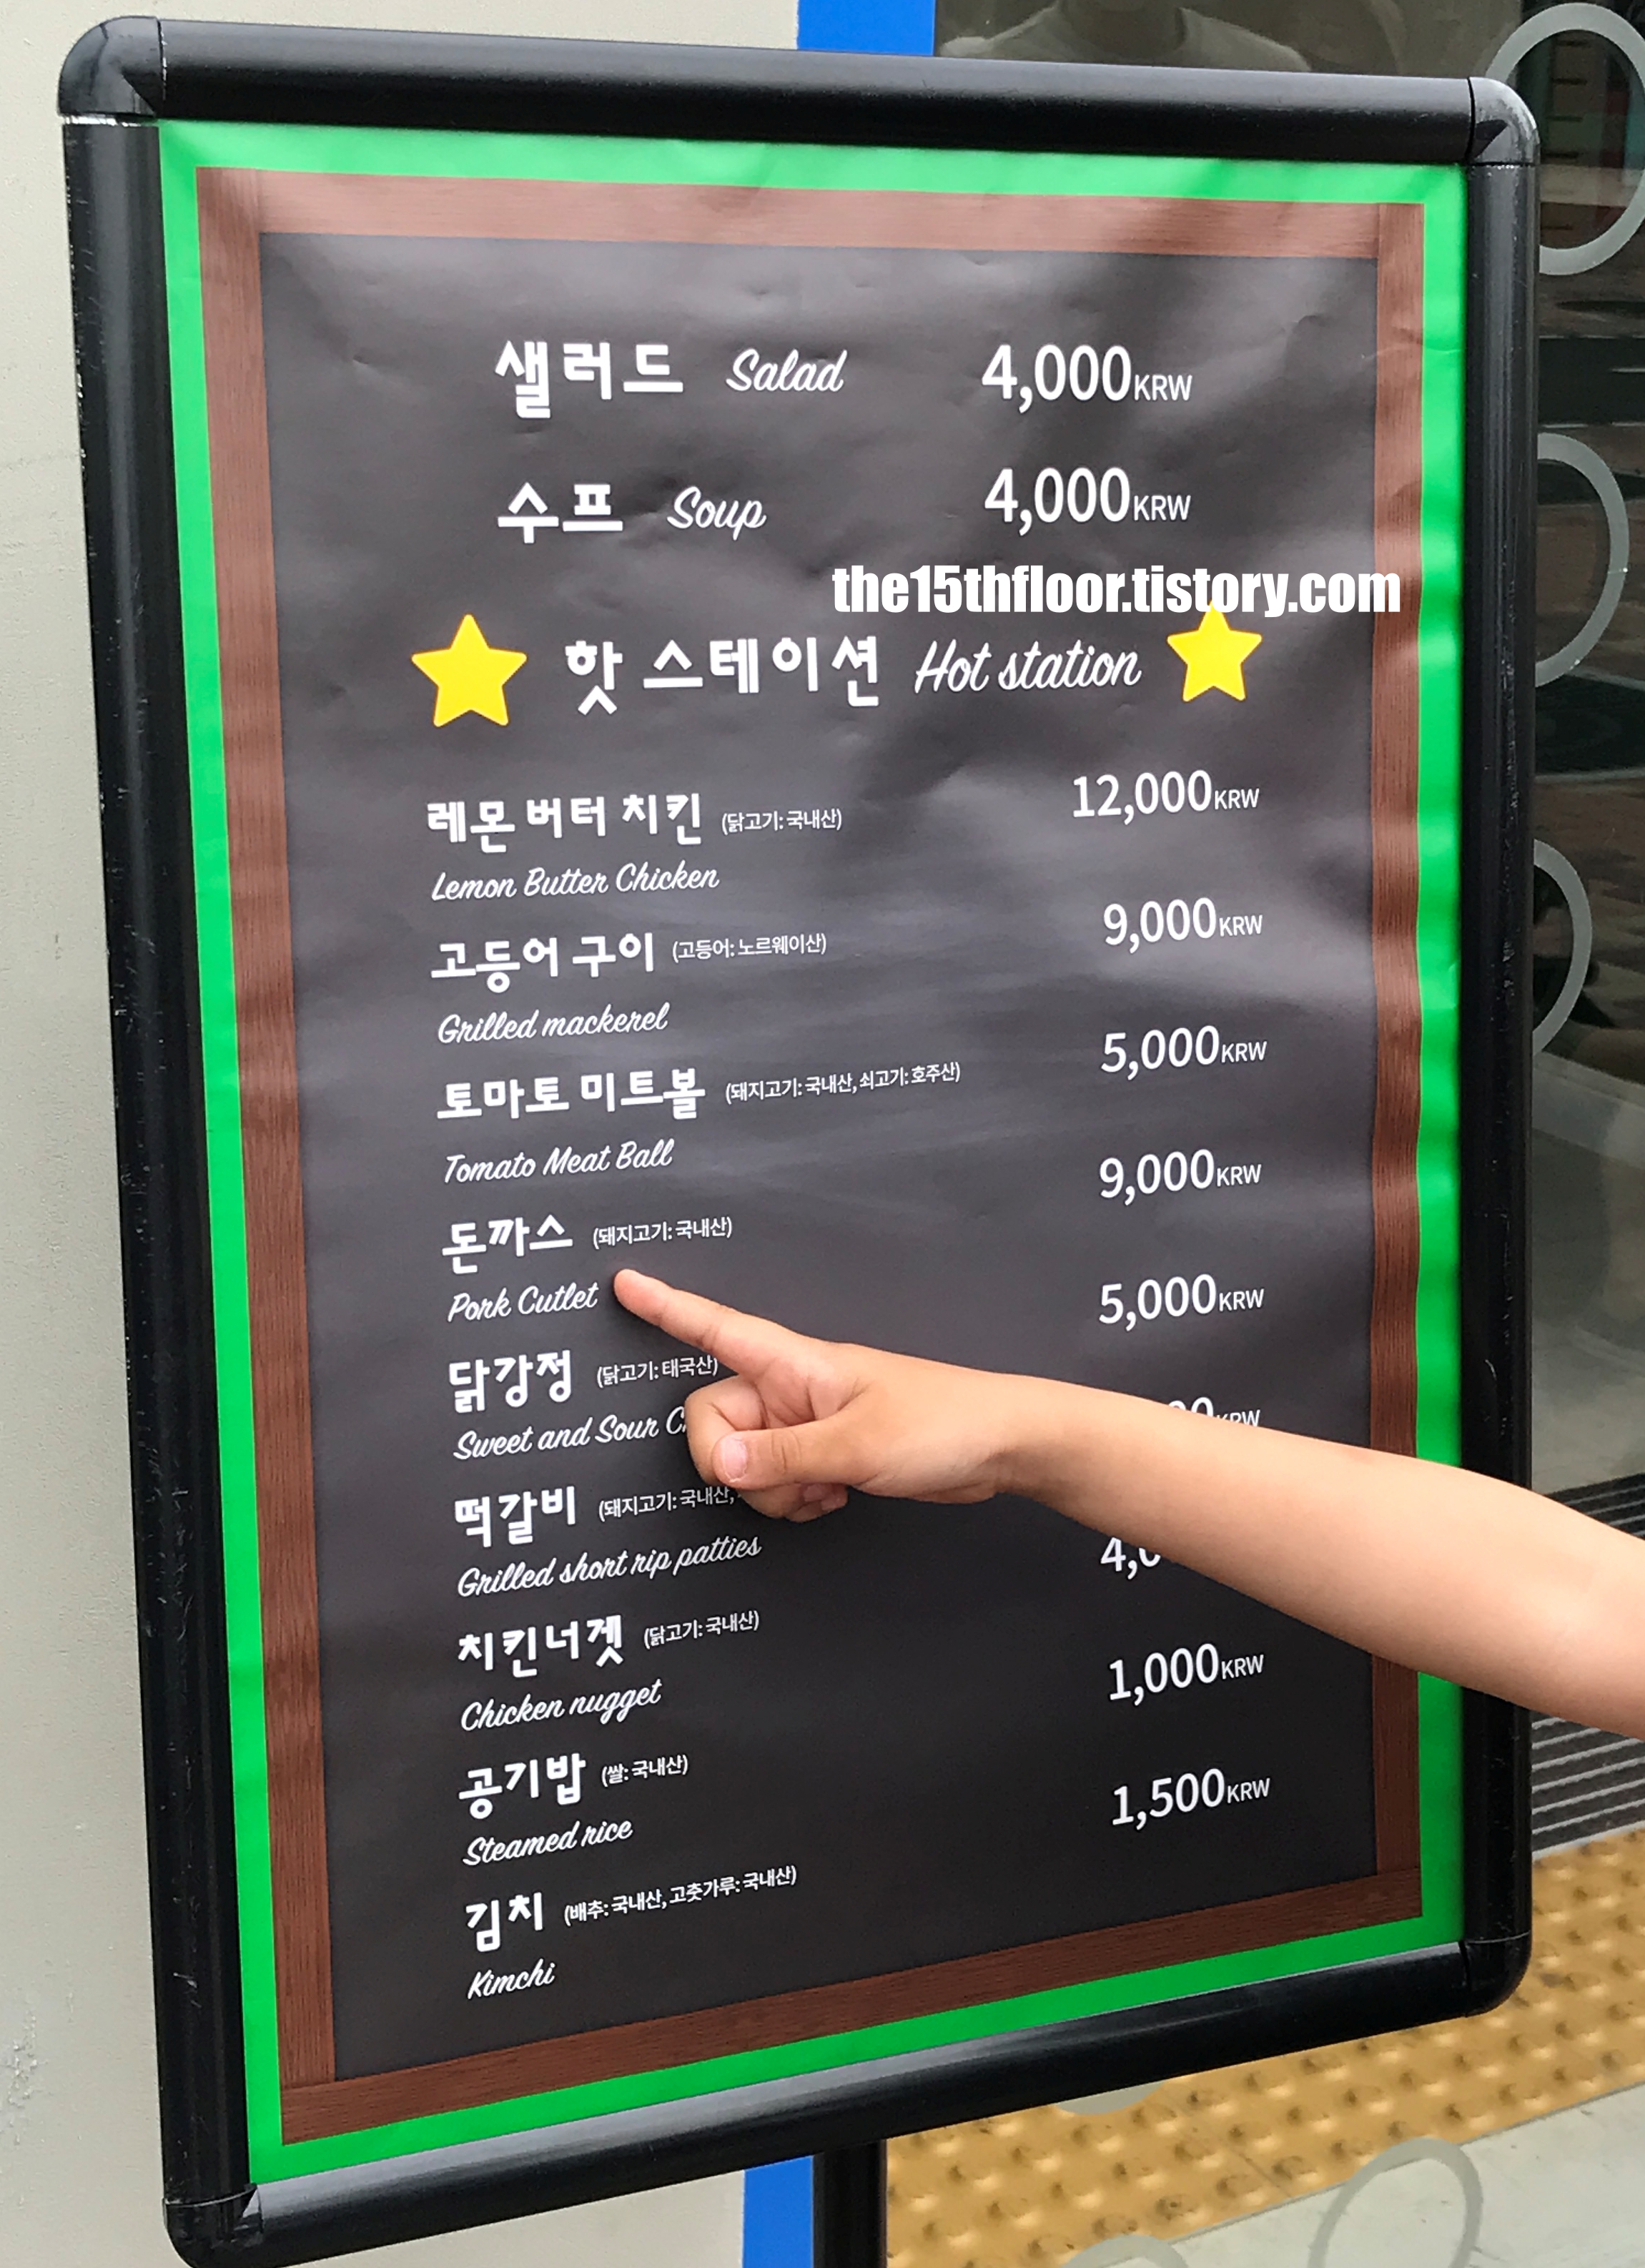 샐러드 Salad 4,000KRW
수프 Soup 4,000KRW
the15thfloor.tistory.com
핫 스테이션 Hot station
레몬 버터 치킨 (닭고기: 국내산) 12,000KRW
Lemon Butter Chicken
고등어 구이 (고등어: 노르웨이산) 9,000KRW
Grilled mackerel
토마토 미트볼 (돼지고기: 국내산, 쇠고기: 호주산) 5,000KRW
Tomato Meat Ball
돈까스 (돼지고기: 국내산) 9,000KRW
Pork Cutlet
닭강정 (닭고기: 태국산) 5,000KRW
Sweet and Sour
떡갈비 (돼지고기: 국내산, KRW
Grilled short rip patties
치킨너겟 (닭고기: 국내산)
Chicken nugget
공기밥 (쌀: 국내산) 1,000KRW
Steamed rice
김치 (배추: 국내산, 고춧가루: 국내산) 1,500KRW
Kimchi